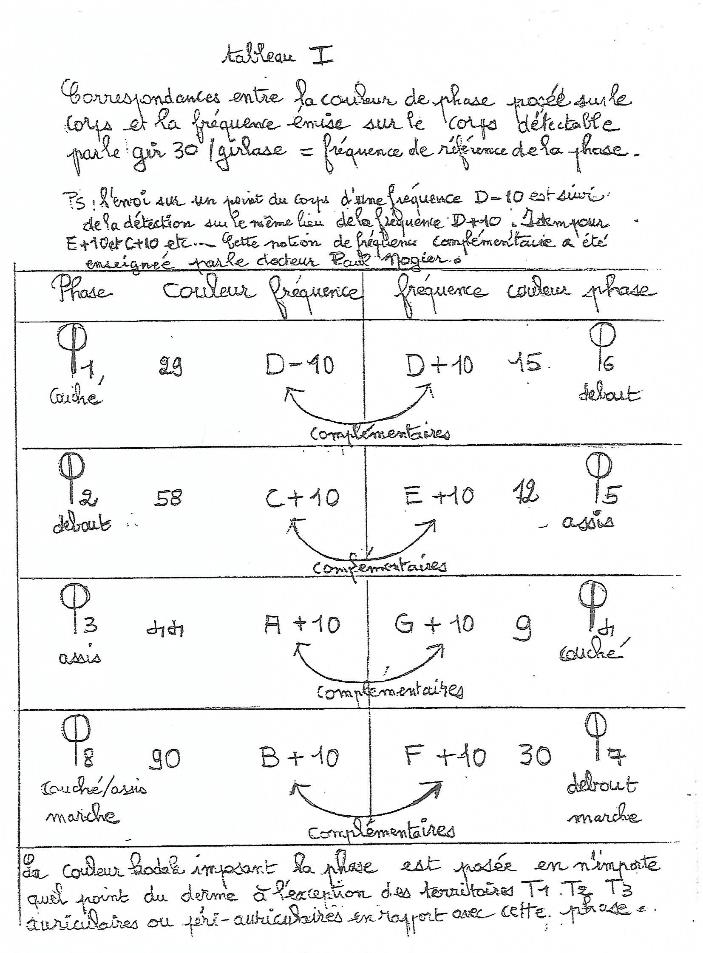 tableau I
Correspondances entre la couleur de phase posée sur le
corps et la fréquence émise sur le corps détectable
par le gir 30 / girlase = fréquence de référence de la phase.
PS : l'envoi sur un point du corps d'une fréquence D-10 est suivi
de la détection sur le même lieu de la fréquence D+10. Idem pour
E+10 et C+10 etc... Cette notion de fréquence complémentaire a été
enseignée par le docteur Paul Nogier.
Phase Couleur fréquence fréquence couleur phase
Φ1 29 D-10 D+10 15 Φ6
couché debout
complémentaires
Φ2 58 C+10 E+10 12 Φ5
debout assis
complémentaires
Φ3 44 A+10 G+10 9 Φ4
assis couché
complémentaires
Φ8 90 B+10 F+10 30 Φ7
couché/assis debout
marche marche
complémentaires
La couleur Kodak imposant la phase est posée en n'importe
quel point du derme à l'exception des territoires T1 T2 T3
auriculaires ou péri-auriculaires en rapport avec cette phase.